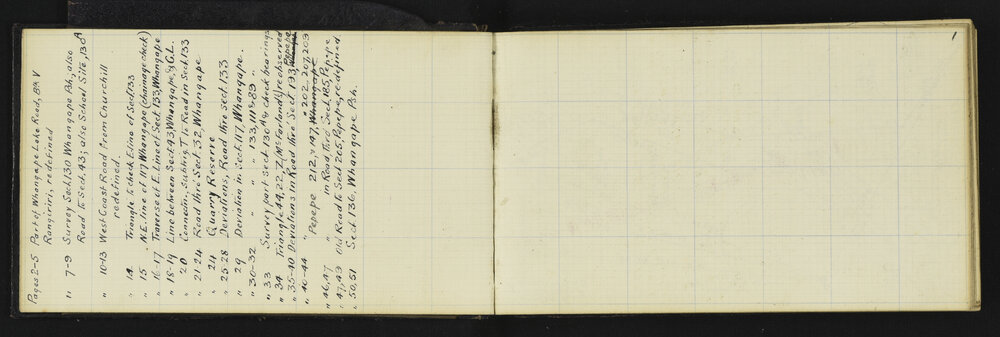 Pages 2-5 Part of Whangape Lake Road, Blk V
Rangiriri, redefined
" 7-9 Survey Sect. 130 Whangape Ph., also
Road to Sect. 43; also School Site, 130A
" 10-13 West Coast Road from Churchill
redefined.
" 14 Triangle to check E. line of Sect. 133
" 15 N.E. line of 117 Whangape (chainage check)
" 16-17 Traverse of E. Line of Sect. 133, Whangape
" 18-19 Line between Sect 43, Whangape, & G.L.
" 20 Connectn. Subtrig. T to Road in Sect. 133
" 21-24 Road thro' Sect. 32, Whangape
" 24 Quarry Reserve
" 25-28 Deviations, Road thro' sect. 133
" 29 Deviation in Sect. 117, Whangape.
" 30-32 " " 133, 111 & 89 "
" 33 Survey part Sect. 136A & check bearings
" 34 Triangle 44, 22, Z, (McFarland's) reobserved
" 35-40 Deviations in Road thro' Sect 193, Whangape Pepepe
" 40-44 " " 202, 207, 203
Pepepe 212, & 147, Whangape
" 46, 47 " in Road, Ford Sect. 185, Pepepe
" 47, 49 Old Road to Sect 205, Pepepe, redefined
" 50, 51 Sect 136, Whangape Ph.
1